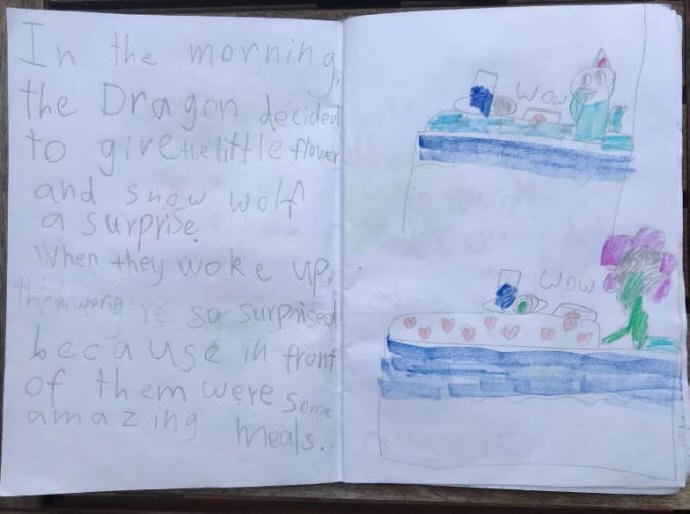 In the morning,
the Dragon decided
to give the little flower
and snow wolf
a surprise.
When they woke up,
so surprised
because in front
of them were some
amazing meals.
wow
wow